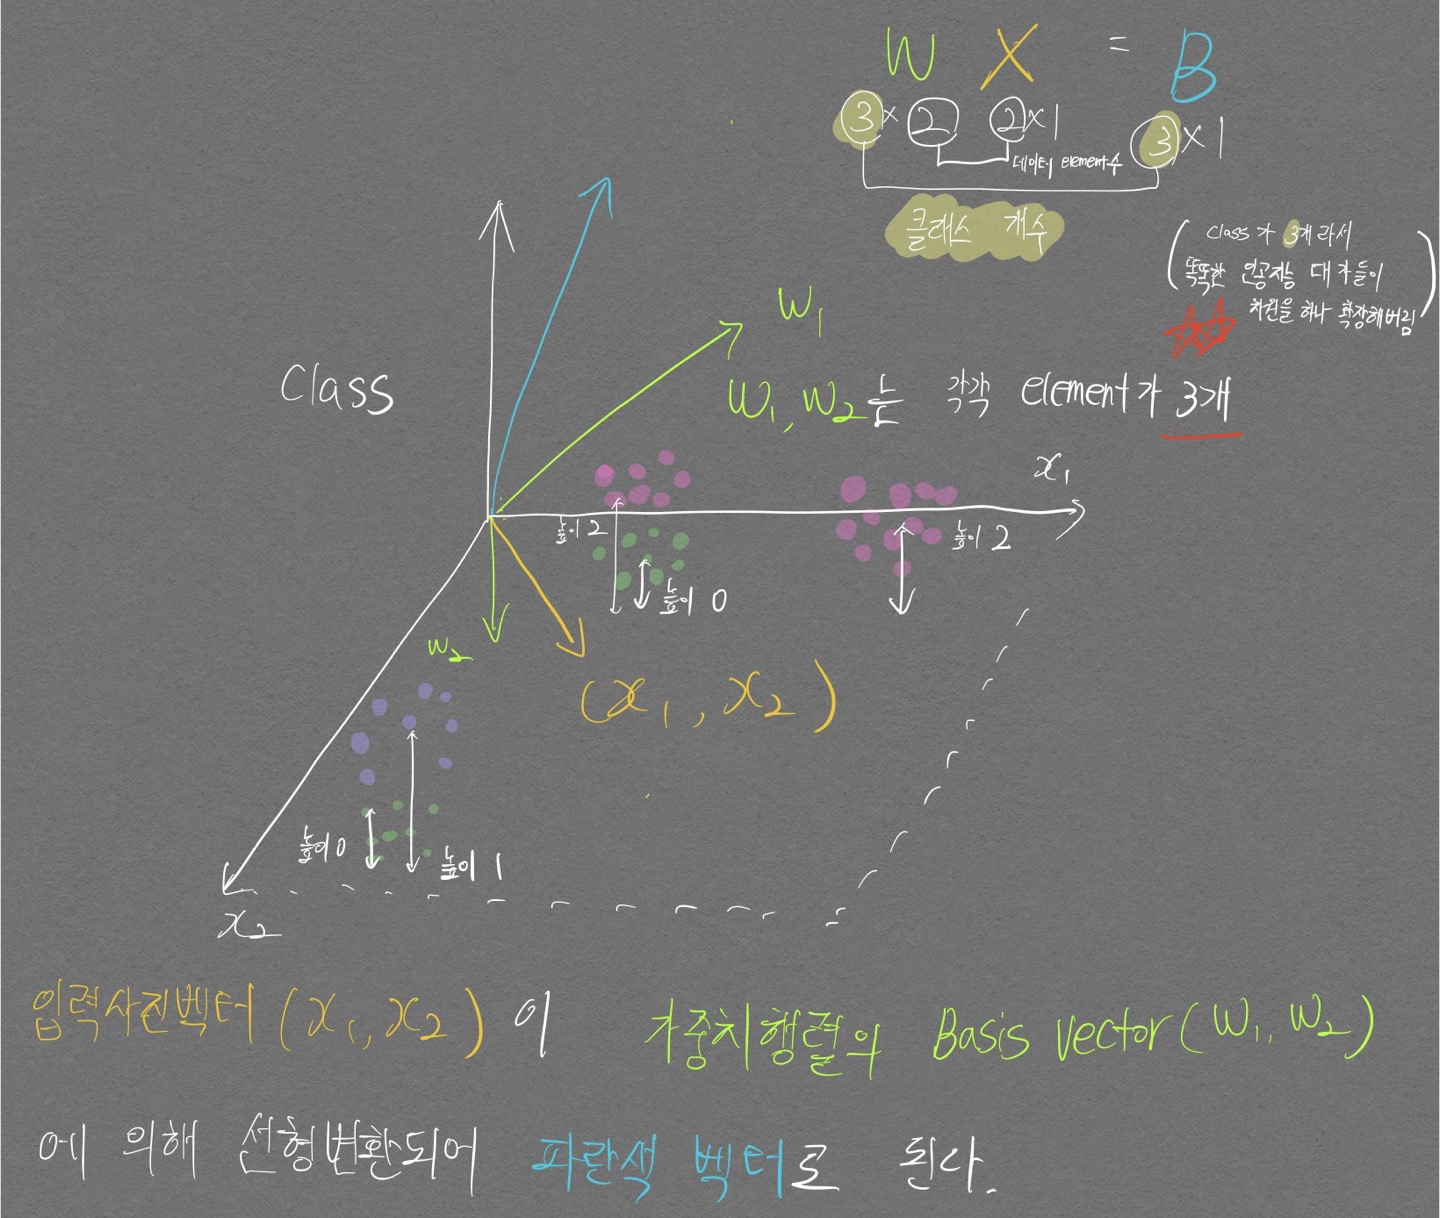 W X = B
3 × 2 2 × 1 3 × 1
데이터 element수
클래스 개수
( class가 3개라서
똑똑한 인공지능 대가들이
차원을 하나 확장해버림 )
W₁
Class
W₁, W₂는 각각 element가 3개
x₁
높이 2
높이 2
높이 0
W₂
(x₁, x₂)
높이 0
높이 1
x₂
입력사진벡터 (x₁, x₂) 이 가중치행렬의 Basis vector(W₁, W₂)
에 의해 선형변환되어 파란색 벡터로 된다.